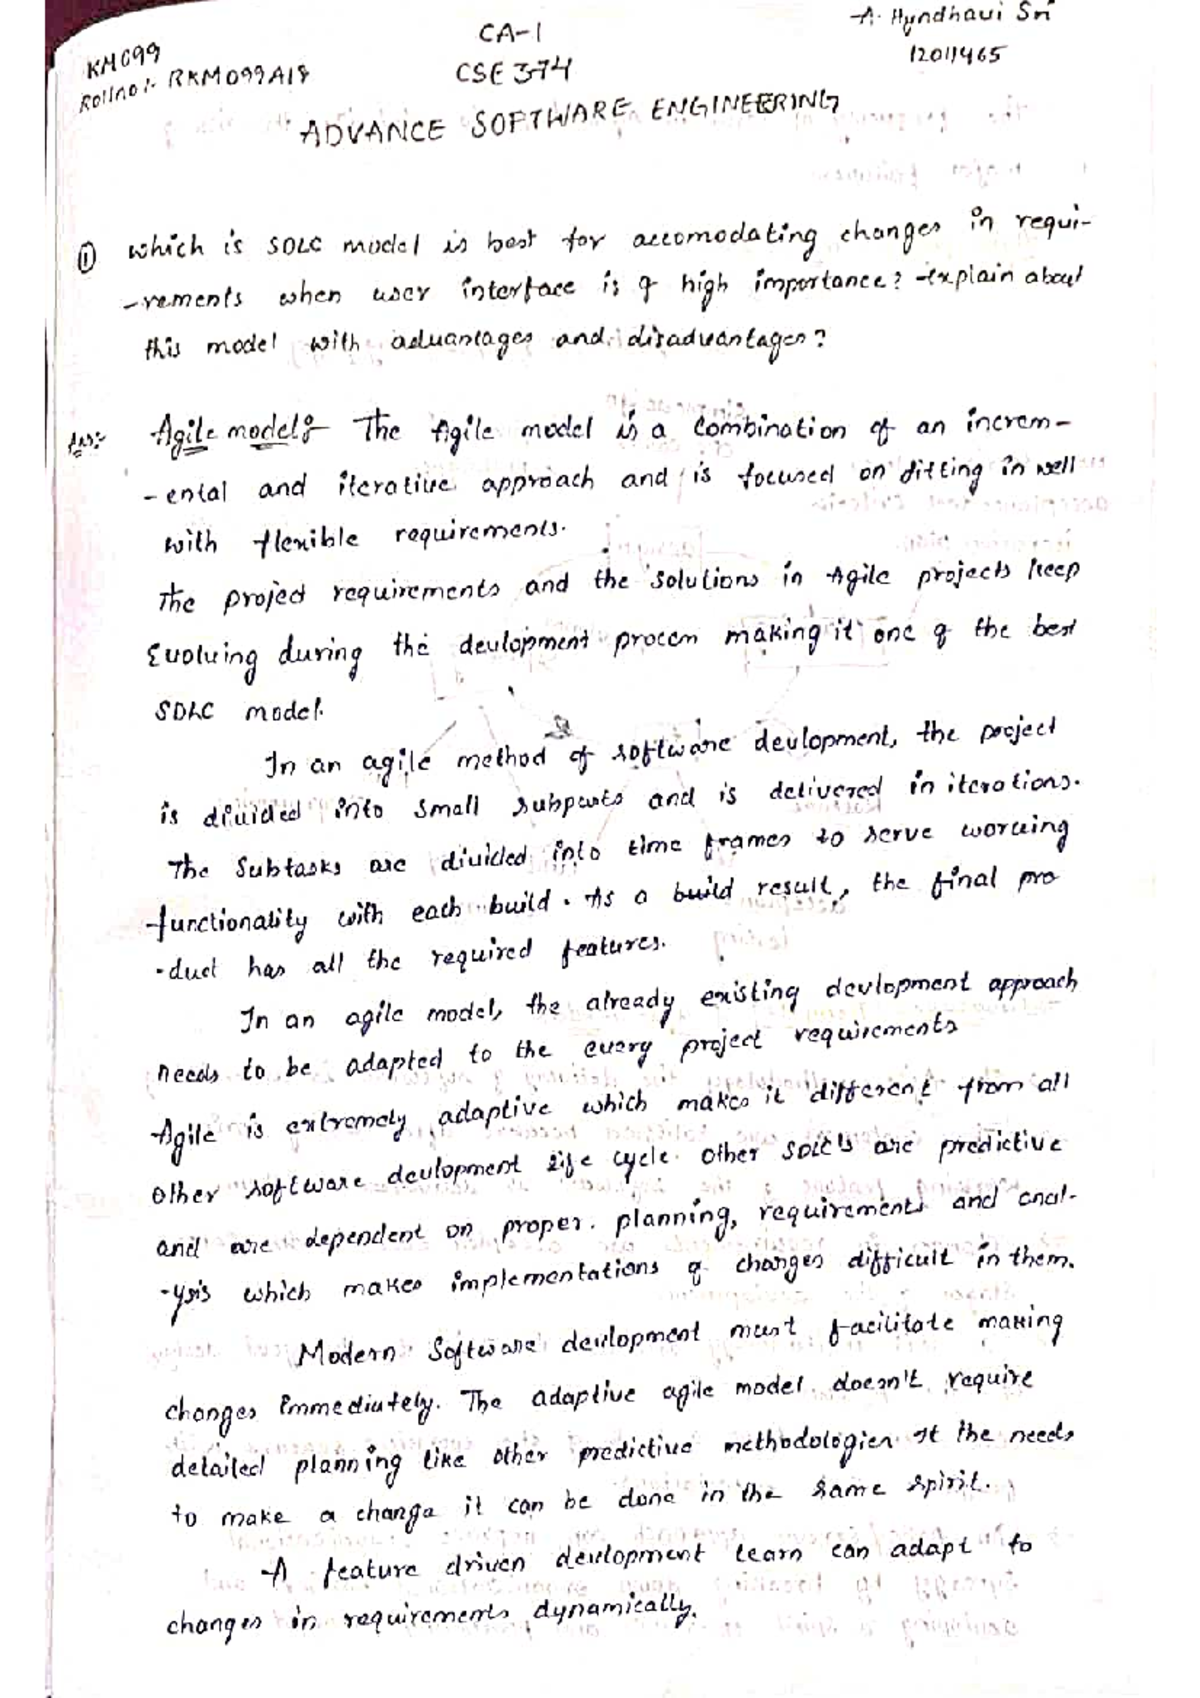 KM099
Rollno:- RKM099A18
CA-1
CSE 374
A. Hyndhavi Sri
12011465
ADVANCE SOFTWARE ENGINEERING
① Which is SDLC model is best for accomodating changes in requi-
-rements when user interface is of high importance? explain about
this model with advantages and disadvantages?
Ans:- Agile model:- The Agile model is a combination of an increm-
-ental and iterative approach and is focused on fitting in well
with flexible requirements.
The project requirements and the solutions in Agile projects keep
Evolving during the devlopment process making it one of the best
SDLC model.
In an agile method of software devlopment, the project
is divided into small subparts and is delivered in iterations.
The Subtasks are divided into time frames to serve working
functionality with each build. As a build result, the final pro
-duct has all the required features.
In an agile model, the already existing devlopment approach
needs to be adapted to the every project requirements
Agile is extremely adaptive which makes it different from all
other software devlopment life cycle. Other SDLC's are predictive
and are dependent on proper. planning, requirements and anal-
-ysis which makes implementations of changes difficult in them.
Modern Software devlopment must facilitate making
changes immediately. The adaptive agile model doesn't require
detailed planning like other predictive methodologies. It the needs
to make a change it can be done in the same spirit.
A feature driven devlopment team can adapt to
changes in requirements dynamically.